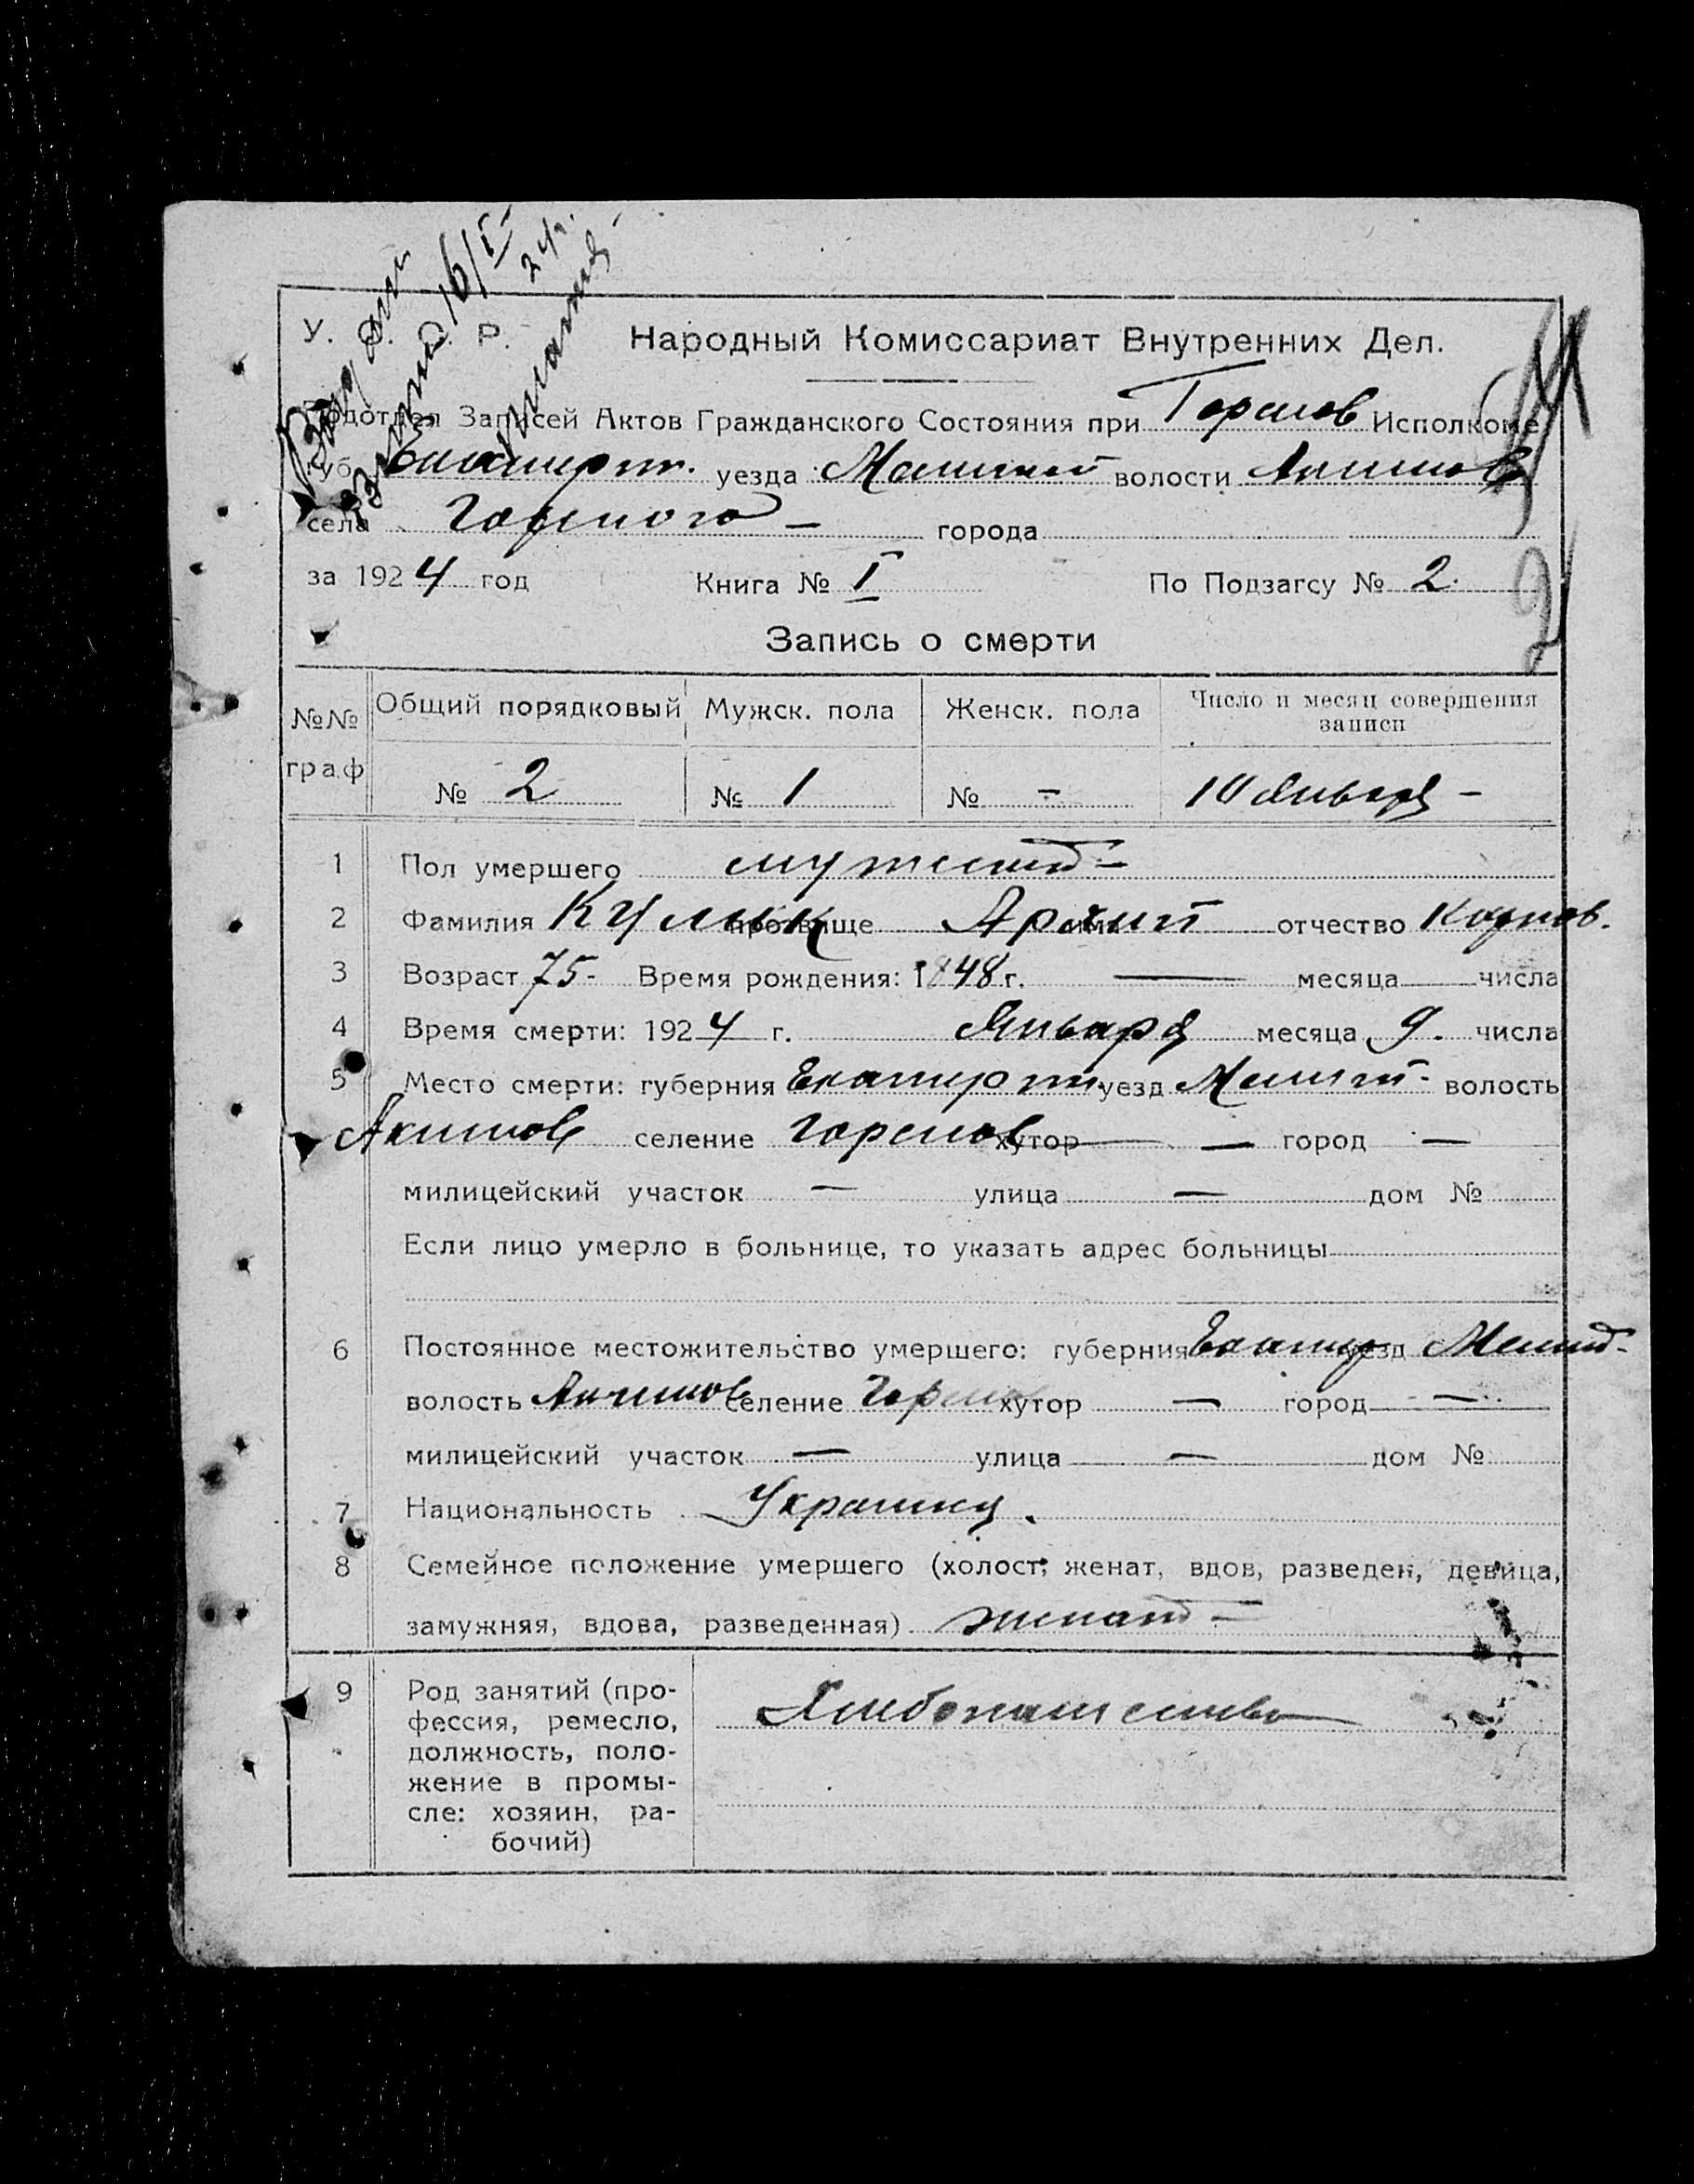 У. С. С. Р. Народный Комиссариат Внутренних Дел.
Подотдел Записей Актов Гражданского Состояния при Горсков Исполкоме
Губ. Екатерин. уезда Мелит волости Акимов
села Горского – города
за 1924 год Книга № I По Подзагсу № 2
Запись о смерти
№№ граф Общий порядковый Мужск. пола Женск. пола Число и месяц совершения записи
№ 2 № 1 № – 10 Января –
1 Пол умершего мужской –
2 Фамилия Кулик прозвище имя Архип отчество
3 Возраст 75- Время рождения: 1848 г. — месяца — числа
4 Время смерти: 1924 г. Января месяца 9. числа
5 Место смерти: губерния Екатерин уезд Мелит волость
Акимов селение Горсков хутор — город —
милицейский участок — улица — дом №
Если лицо умерло в больнице, то указать адрес больницы
6 Постоянное местожительство умершего: губерния Екатер уезд Мелит-
волость Акимов селение Горсков хутор — город —
милицейский участок — улица — дом №
7 Национальность Украинец.
8 Семейное положение умершего (холост, женат, вдов, разведен, девица,
замужняя, вдова, разведенная) женат –
9 Род занятий (про-
фессия, ремесло,
должность, поло-
жение в промы-
сле: хозяин, ра-
бочий)
Хлебопашество